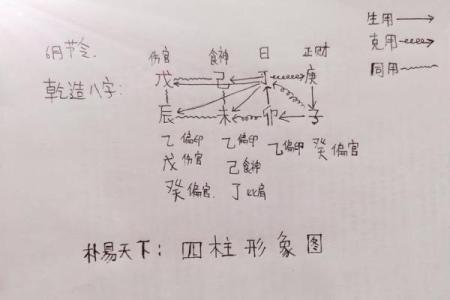 生用
克用
同用
6月节令
伤官 食神 日 正财
乾造八字: 戊 己 丁 庚
辰 未 卯 子
乙偏印 乙偏印 乙偏印 癸偏官
戊伤官 己食神
癸偏官. 丁比肩
朴易天下: 四柱形象图